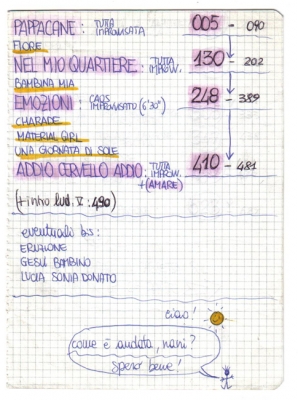 PAPPACANE : TUTTA IMPROVVISATA 005 - 090
FIORE
NEL MIO QUARTIERE : TUTTA IMPROVV. 130 - 202
BAMBINA MIA
EMOZIONI : CAOS IMPROVVISATO (6'30") 248 - 389
CHARADE
MATERIAL GIRL
UNA GIORNATA DI SOLE
ADDIO CERVELLO ADDIO : TUTTA IMPROVV. 410 - 481
+(AMARE)
(+ intro lud. V : 490)
eventuali bis :
ERUZIONE
GESÙ BAMBINO
LUCIA SONIA DONATO
ciao!
come è andata, nani?
spero bene!